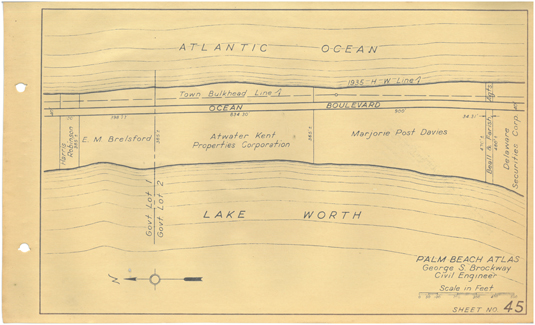 ATLANTIC OCEAN
1935 H.W. Line
Town Bulkhead Line
OCEAN BOULEVARD
934.50
900
Harris
Robinson
E. M. Brelsford
Atwater Kent
Properties Corporation
Marjorie Post Davies
Delaware
Securities Corp.
Govt. Lot 1
Govt. Lot 2
LAKE WORTH
N
PALM BEACH ATLAS
George S. Brockway
Civil Engineer
Scale in Feet
SHEET NO. 45